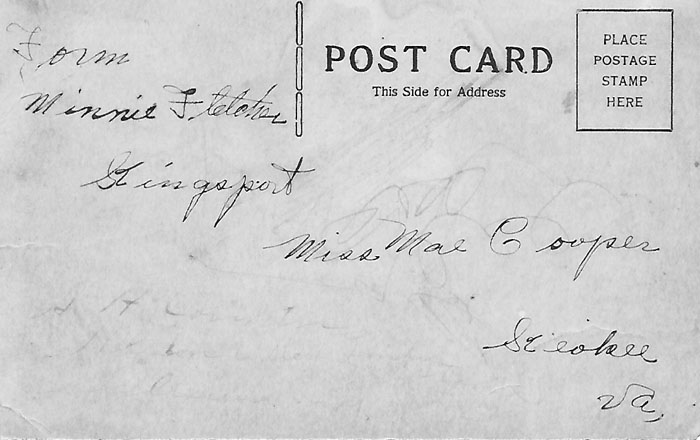 Form
Minnie Fletcher
Kingsport
POST CARD
This Side for Address
PLACE
POSTAGE
STAMP
HERE
Miss Mae Cooper
Keokee
Va,